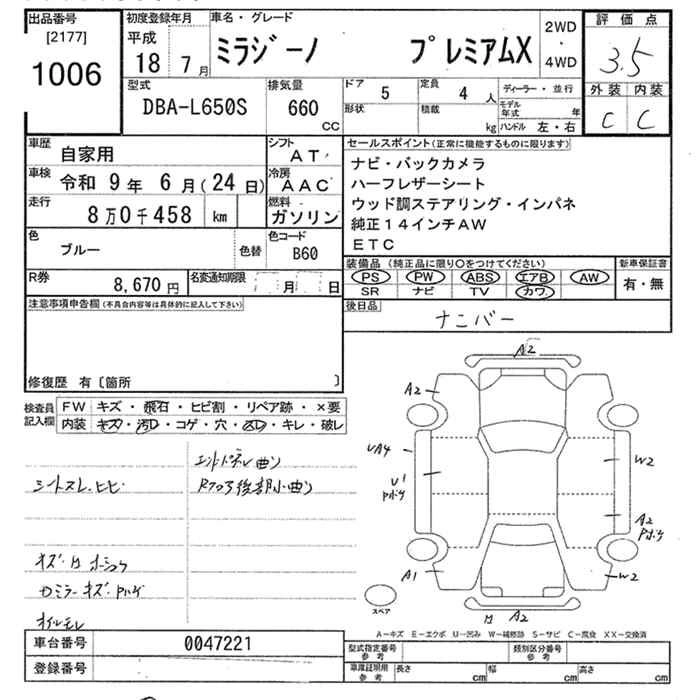 出品番号
[2177]
1006
初度登録年月
平成
18 7 月
車名・グレード
ミラジーノ プレミアムX
2WD
・
4WD
評価点
3.5
外装 内装
C C
型式
DBA-L650S
排気量
660
CC
ドア 5
形状
定員 4 人
積載 kg
ディーラー・並行
モデル年式 年
ハンドル 左・右
車歴 自家用
シフト AT
車検 令和 9 年 6 月(24日)
冷房 AAC
走行 8万0千458 km
燃料 ガソリン
色 ブルー 色替
色コード B60
R券 8,670 円
名変通知期限 月 日
セールスポイント(正常に機能するものに限ります)
ナビ・バックカメラ
ハーフレザーシート
ウッド調ステアリング・インパネ
純正14インチAW
ETC
装備品(純正品に限り○をつけてください)
PS PW ABS エアB AW
SR ナビ TV カワ
新車保証書
有・無
後日品
ナンバー
注意事項申告欄(不具合内容等は具体的に記入して下さい)
修復歴 有〔箇所 〕
検査員記入欄
FW キズ・飛石・ヒビ割・リペア跡・×要
内装 キズ・汚レ・コゲ・穴・スレ・キレ・破レ
シートスレ.ヒビ
Rフロア後部小曲り
オイルモレ
A2
A2
UA4
W2
A2
A1
W2
A2
スペア
A－キズ E－エクボ U－凹み W－補修跡 S－サビ C－腐食 XX－交換済
車台番号 0047221
登録番号
型式指定番号 参考
類別区分番号 参考
車庫証明用 参考
長さ cm 幅 cm 高さ cm